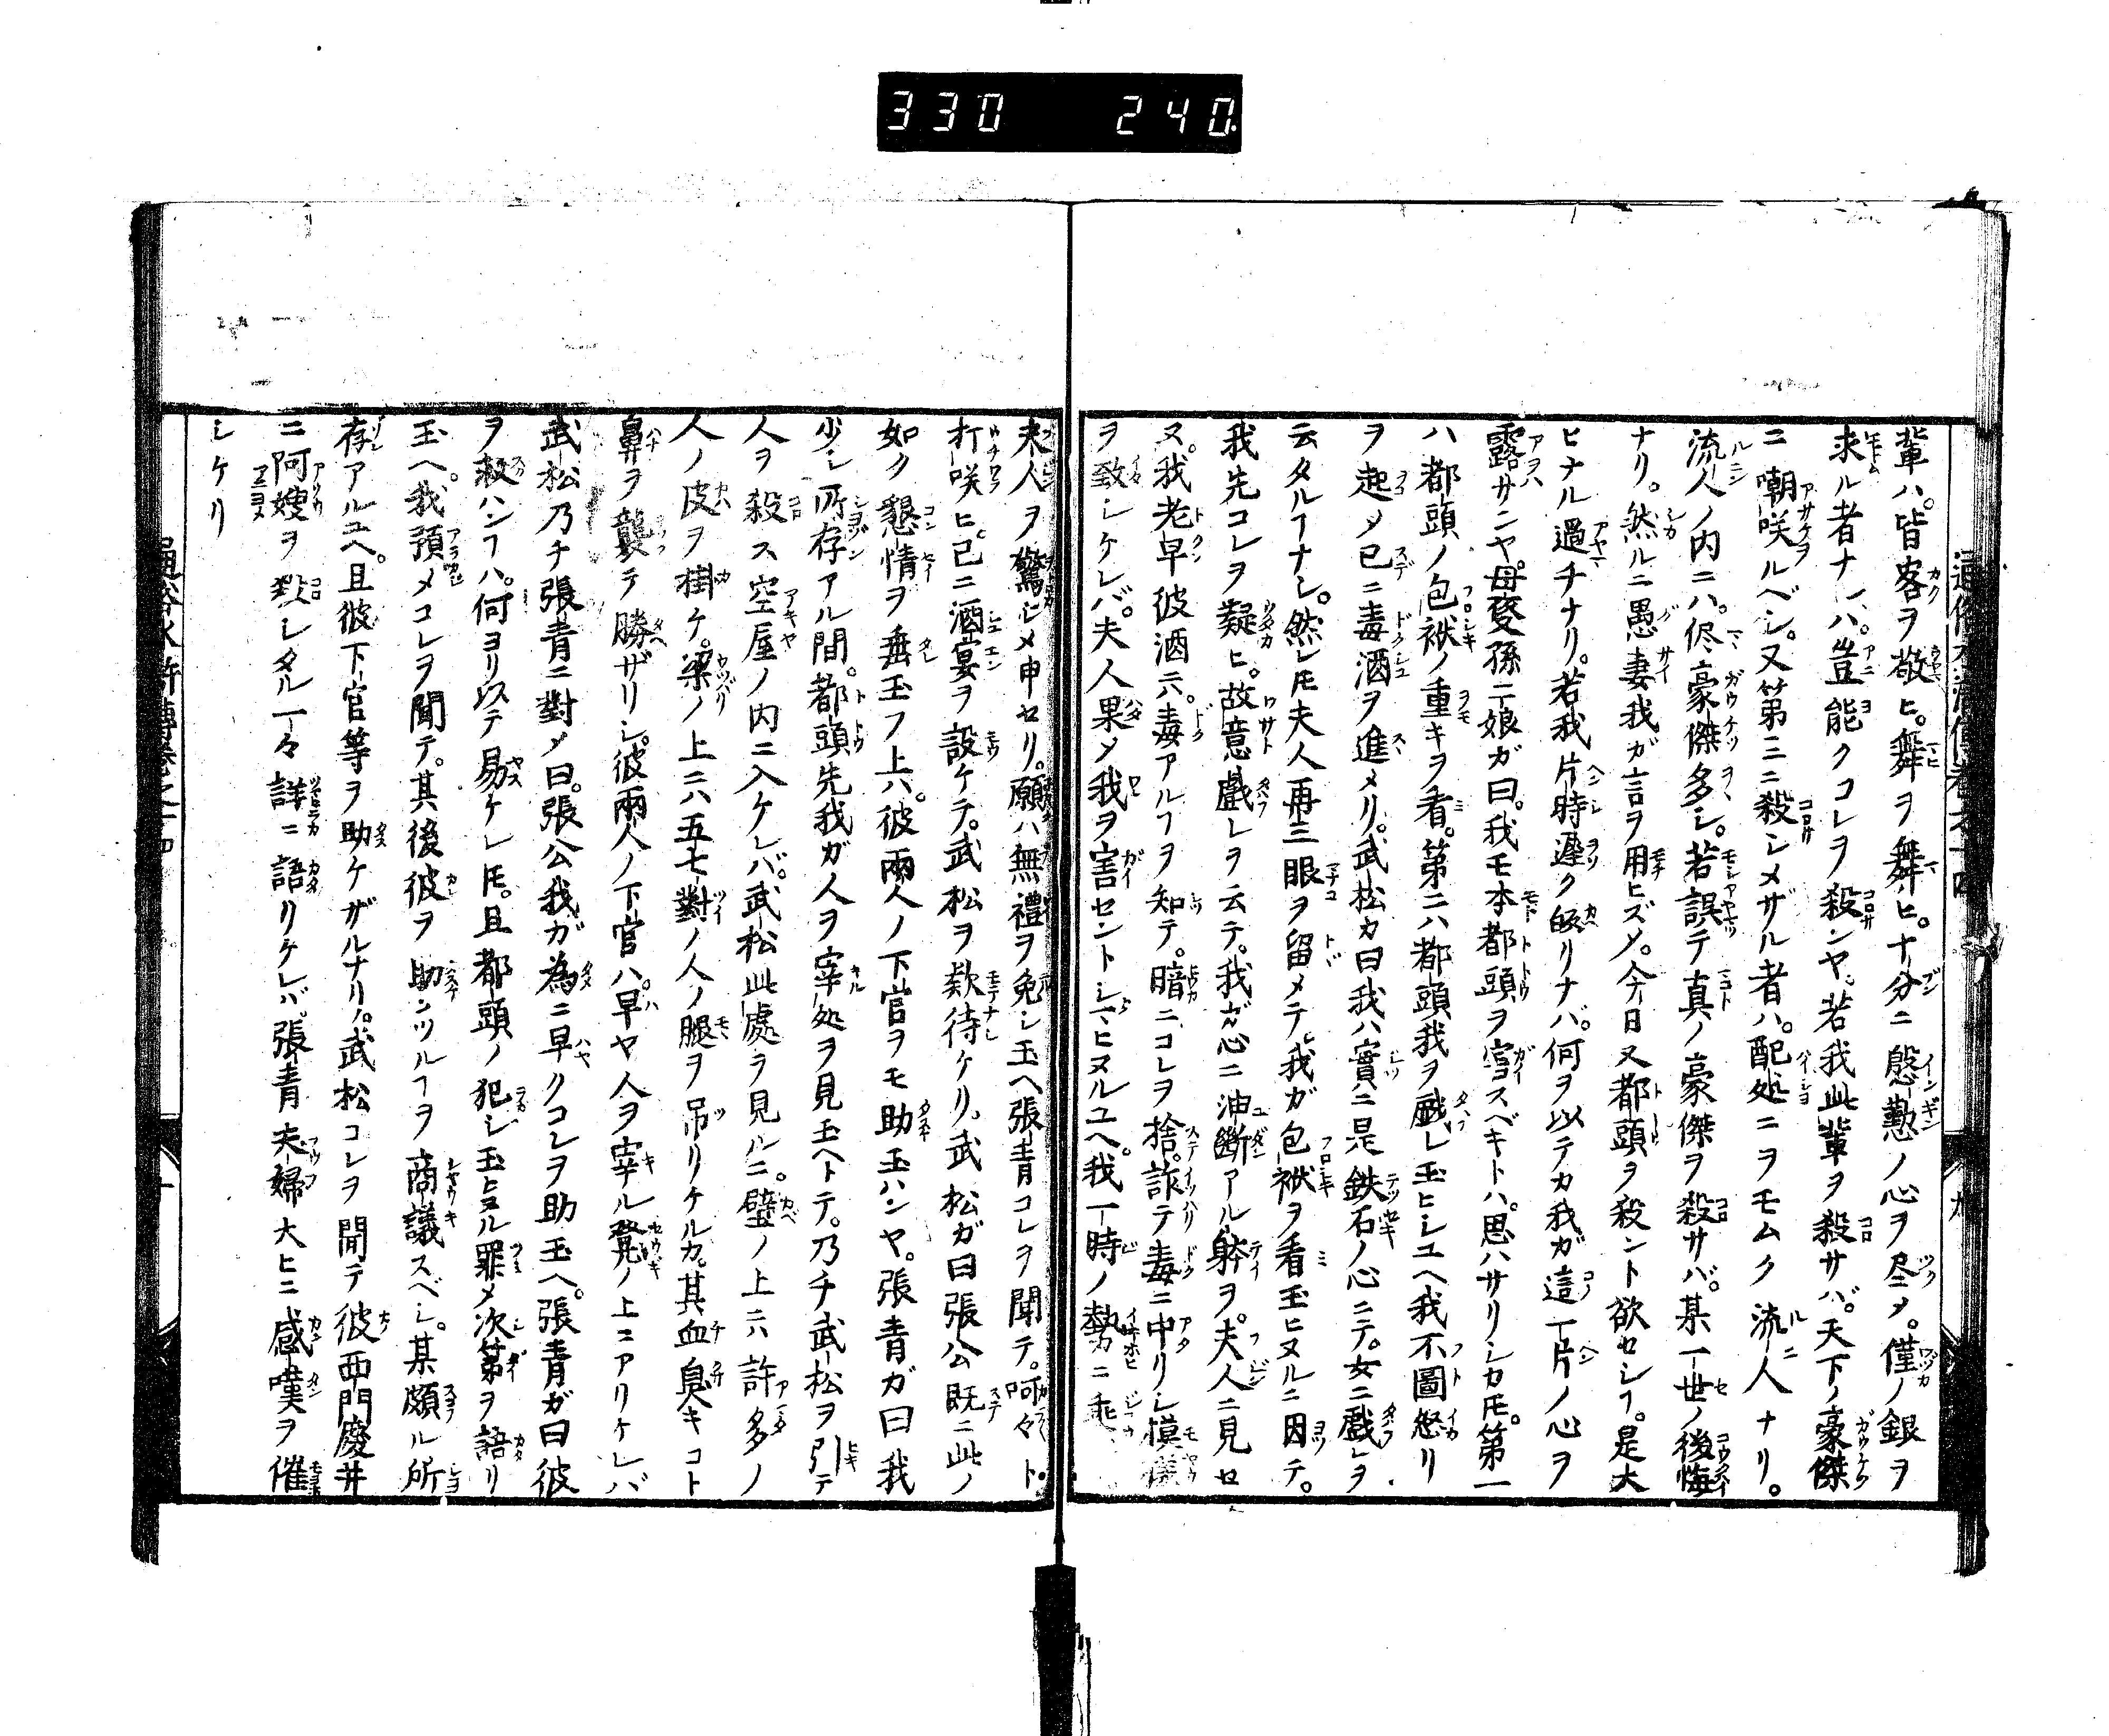 330 240
輩ハ。皆客ヲ敬ヒ。舞ヲ舞ヒ。十分ニ慇懃ノ心ヲ尽メ。僅ノ銀ヲ
求ル者ナレハ。豈能クコレヲ殺ンヤ。若我此輩ヲ殺サバ。天下ノ豪傑
ニ嘲咲ルベシ。又第三ニ殺シメザル者ハ。配処ニヲモムク流人ナリ。
流人ノ内ニハ。侭豪傑多シ。若誤テ真ノ豪傑ヲ殺サバ。某一世ノ後悔
ナリ。然ルニ愚妻我ガ言ヲ用ヒズメ。今日又都頭ヲ殺ント欲セシヿ。是大
ヒナル過チナリ。若我片時遅ク皈リナバ。何ヲ以テカ我ガ這一片ノ心ヲ
露サンヤ。母夜叉孫二娘ガ曰。我モ本都頭ヲ害スベキトハ。思ハサリシカ𪜈。第一
ハ都頭ノ包袱ノ重キヲ看。第二ハ都頭我ヲ戯レ玉ヒシユヘ我不圖怒リ
ヲ起メ已ニ毒酒ヲ進メリ。武松カ曰我ハ實ニ是鉄石ノ心ニテ。女ニ戯レヲ
云タルヿナシ。然レ𪜈夫人再三眼ヲ留メテ。我ガ包袱ヲ看玉ヒヌルニ因テ。
我先コレヲ疑ヒ。故意戯レヲ云テ。我ガ心ニ油斷アル躰ヲ。夫人ニ見セ
ヌ。我老早彼酒ニ毒アルヿヲ知テ。暗ニコレヲ捨。詐テ毒ニ中リシ模樣
ヲ致シケレバ。夫人果メ我ヲ害セントシ玉ヒヌルユヘ。我一時ノ勢ニ乘
夫人ヲ驚シメ申セリ。願ハ無禮ヲ免シ玉ヘ張青コレヲ聞テ。呵々ト
打咲ヒ。已ニ酒宴ヲ設ケテ。武松ヲ欵待ケリ。武松ガ曰張公既ニ此ノ
如ク懇情ヲ垂玉フ上ハ。彼兩人ノ下官ヲモ助玉ハンヤ。張青ガ曰我
少シ所存アル間。都頭先我ガ人ヲ宰処ヲ見玉ヘトテ。乃チ武松ヲ引テ
人ヲ殺ス空屋ノ内ニ入ケレバ。武松此處ヲ見ルニ。壁ノ上ニハ許多ノ
人ノ皮ヲ掛ケ。梁ノ上ニハ五七對ノ人ノ腿ヲ吊リケルカ。其血臭キコト
鼻ヲ襲テ勝ザリシ。彼兩人ノ下官ハ。早ヤ人ヲ宰ル凳ノ上ニアリケレバ
武松乃チ張青ニ對メ曰。張公我ガ為ニ早クコレヲ助玉ヘ。張青ガ曰彼
ヲ救ハンヿハ。何ヨリ以テ易ケレ𪜈。且都頭ノ犯シ玉ヒヌル罪メ次第ヲ語リ
玉ヘ。我預メコレヲ聞テ。其後彼ヲ助ンツルヿヲ商議スベシ。某頗ル所
存アルユヘ。且彼下官等ヲ助ケザルナリ。武松コレヲ聞テ彼西門慶并
ニ阿嫂ヲ殺シタル一々詳ニ語リケレバ。張青夫婦大ヒニ感嘆ヲ催
シケリ